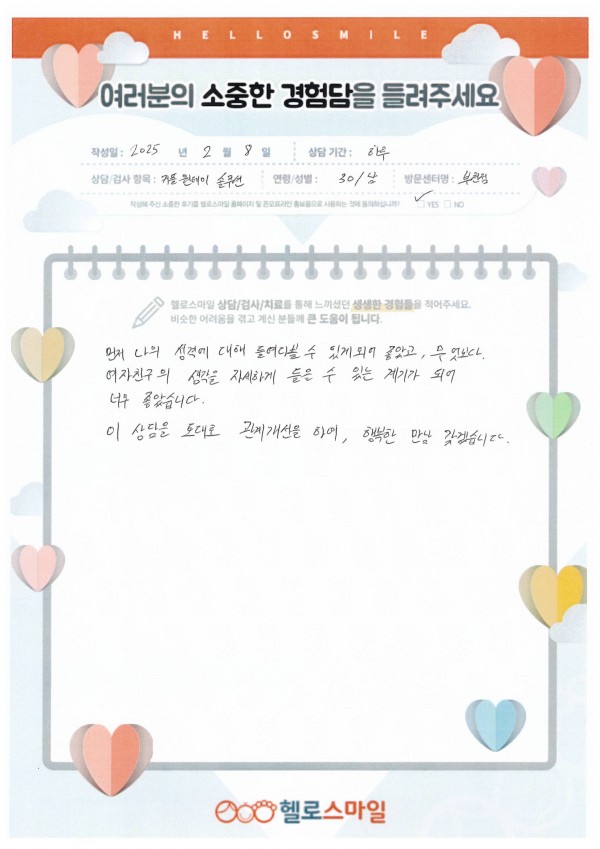 HELLOSMILE
여러분의 소중한 경험담을 들려주세요
작성일 : 2025 년 2 월 8 일 상담 기간 : 하루
상담/검사 항목 : 커플 원데이 솔루션 연령/성별 : 30/남 방문센터명 : 부천점
작성해 주신 소중한 후기를 헬로스마일 홈페이지 및 온오프라인 홍보용으로 사용하는 것에 동의하십니까? ✓ □ YES □ NO
헬로스마일 상담/검사/치료를 통해 느끼셨던 생생한 경험들을 적어주세요.
비슷한 어려움을 겪고 계신 분들께 큰 도움이 됩니다.
먼저 나의 성격에 대해 들여다볼 수 있게되어 좋았고, 무엇보다.
여자친구의 생각을 자세하게 들을 수 있는 계기가 되어
너무 좋았습니다.
이 상담을 토대로 관계개선을 하여, 행복한 만남 갖겠습니다.
헬로스마일